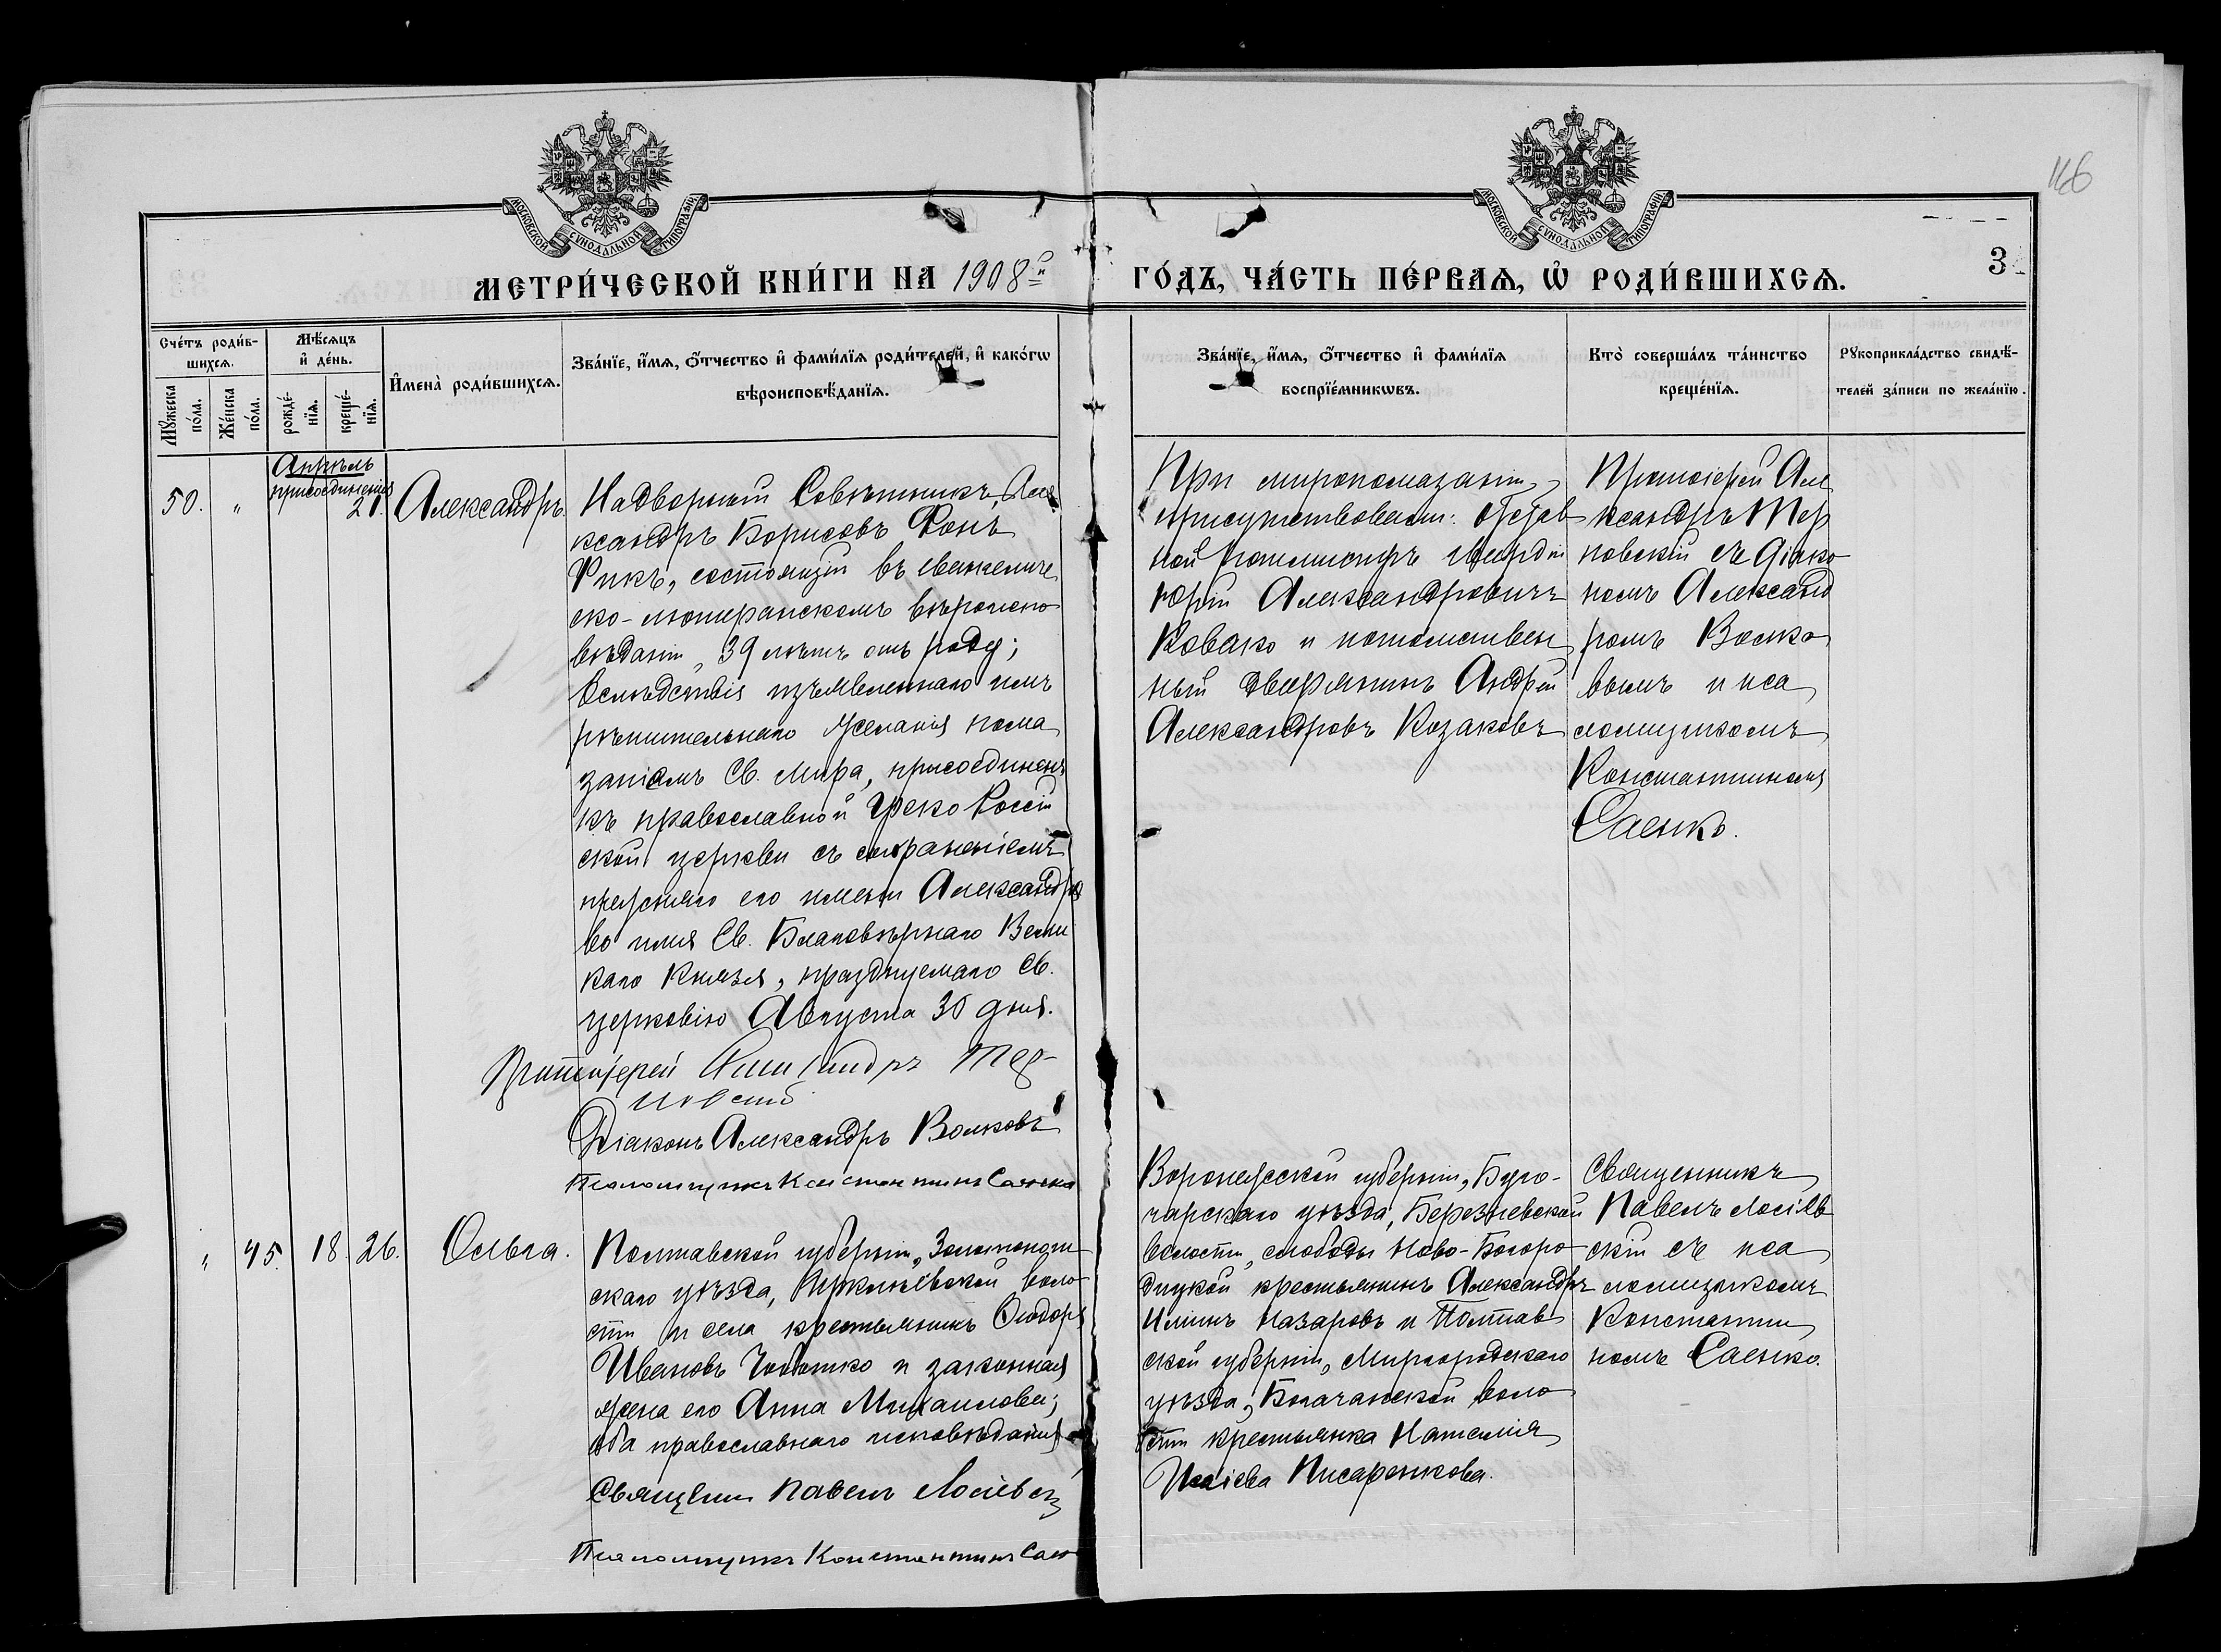 166
МОСКОВСКОЙ СѴНОДАЛЬНОЙ ТИПОГРАФІИ
МОСКОВСКОЙ СѴНОДАЛЬНОЙ ТИПОГРАФІИ
МЕТРИ́ЧЕСКОЙ КНИ́ГИ НА 1908й
ГО́ДЪ, ЧА́СТЬ ПЕ́РВАѦ, Ѡ҆ РОДИ́ВШИХСѦ.
3
Сче́тъ роди́в-
шихсѧ.
Мꙋ́жеска
по́ла.
Же́нска
по́ла.
Мѣ́сѧцъ
и҆ де́нь.
рожде́-
нїѧ.
креще́-
нїѧ.
И҆мена̀ роди́вшихсѧ.
Зва́нїе, и҆́мѧ, ѻ҆́тчество и҆ фами́лїѧ роди́телей, и҆ како́гѡ
вѣроисповѣ́данїѧ.
Зва́нїе, и҆́мѧ, ѻ҆́тчество и҆ фами́лїѧ
воспрїе́мникѡвъ.
Кто̀ соверша́лъ та́инство
креще́нїѧ.
Рꙋкоприкла́дство свидѣ́-
телей за́писи по жела́нїю.
Апрѣль
присоединенія
50. " 21. Александръ.
Надворный Совѣтникъ Але
ксандръ Борисовъ Фонъ
Рикъ, состоящій въ евангеличе
ско-лютеранскомъ вѣроиспо
вѣданіи, 39 лѣтъ отъ роду;
вслѣдствіе изъявленнаго имъ
рѣшительнаго желанія пома
заніемъ Св. Мира, присоединенъ
къ православной Греко Россій
ской церкви съ сохраненіемъ
прежняго его имени Александръ
во имя Св. Благовѣрнаго Вели
каго Князя, празднуемаго Св.
церковію Августа 30 дня.
Протоіерей Александръ Тер-
новскій
Діаконъ Александръ Волковъ
Псаломщикъ Константинъ Саенко
При миропомазаніи
присутствовали: Отстав
ной гвардіи
Юрій Александровичъ
Ковако и потомствен
ный дворянинъ Андрей
Александровъ Козаковъ
Протоіерей Але
ксандръ Тер
новскій съ діако
номъ Александ
ромъ Волко
вымъ и пса
ломщикомъ
Константиномъ
Саенко.
" 45. 18. 26. Ольга.
Полтавской губерніи, Золотонош
скаго уѣзда, волo
сти и села крестьянинъ Ѳеодоръ
Ивановъ Чоботко и законная
жена его Анна Михаилова;
оба православнаго исповѣданія
Священникъ Павелъ Лосіевскій
Псаломщикъ Константинъ Саен
Воронежской губерніи, Бого-
чарскаго уѣзда, Березневской
волости, слободы Ново-Богоро
дицкой крестьянинъ Александръ
Ильинъ Назаровъ и Полтав
ской губерніи, Миргородскаго
уѣзда, Богачанской воло
сти крестьянка Наталія
Исаіева Писаренкова.
Священникъ
Павелъ Лосіев
скій съ пса
ломщикомъ
Константи
номъ Саенко.